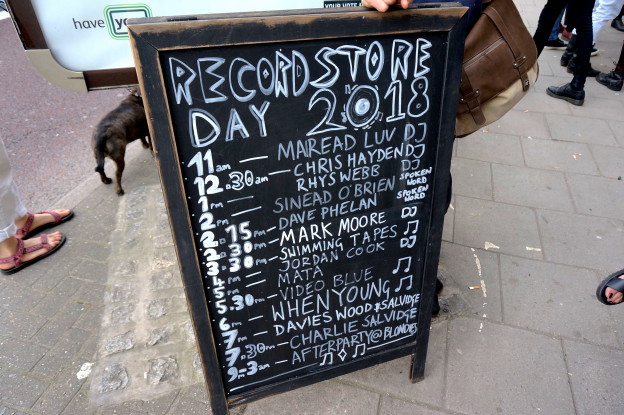 have yo
YOUR VOTE
RECORD STORE
DAY 2018
11am — MAIREAD LUV DJ
12.30am — CHRIS HAYDEN DJ
1pm — RHYS WEBB DJ
2pm — SINEAD O'BRIEN SPOKEN WORD
2.15pm — DAVE PHELAN SPOKEN WORD
MARK MOORE
30pm — SWIMMING TAPES
30pm — JORDAN COOK
MATA
5.30pm — VIDEO BLUE
6pm — WHEN YOUNG
7pm — DAVIES WOOD & SALVIDGE
7.30pm — CHARLIE SALVIDGE
9-3am — AFTERPARTY @ BLONDIES